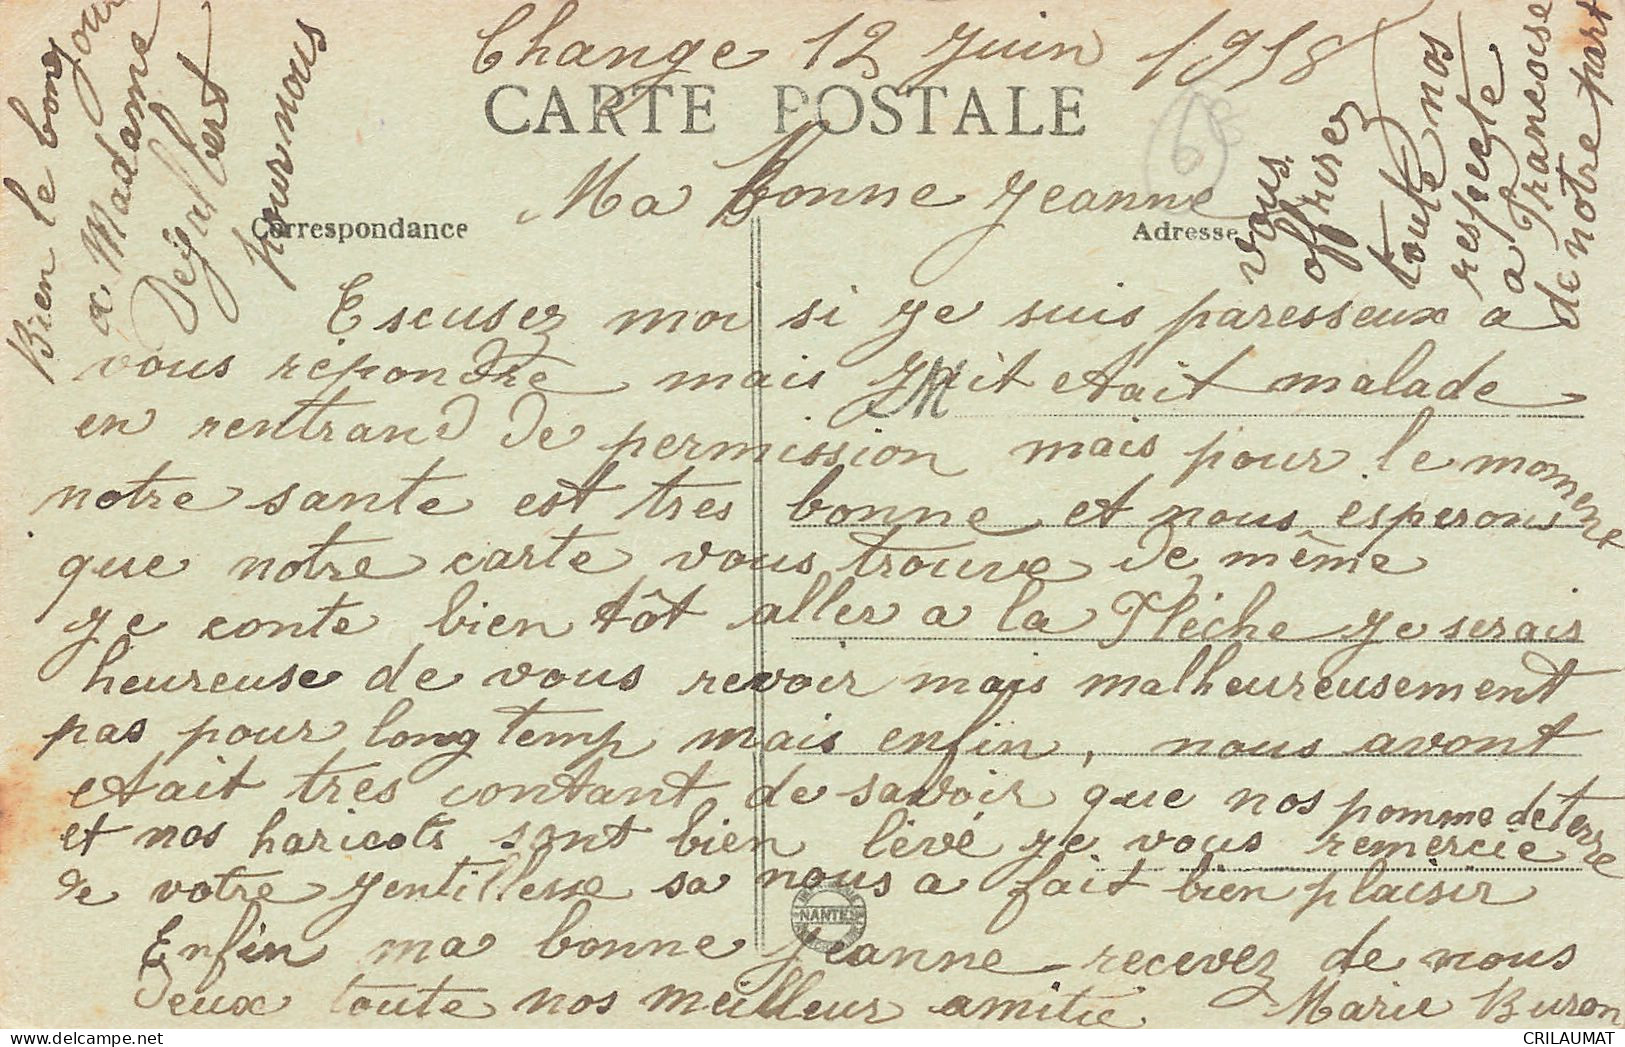 Change 12 juin 1918
CARTE POSTALE
Ma bonne Jeanne
Correspondance
Adresse
Escusez moi si je suis paresseux a
vous répondre mais M etait malade
en rentrand de permission mais pour le moment
notre sante est tres bonne et nous esperons
que notre carte vous trouve de même
je conte bien tôt aller a la Flèche je serais
heureuse de vous revoir mais malheureusement
pas pour longtemp mais enfin, nous avont
etait tres contant de savoir que nos pomme de terre
et nos haricots sont bien lévé je vous remercie
de votre gentillesse sa nous a fait bien plaisir
Enfin ma bonne Jeanne recevez de nous
deux toute nos meilleur amitié Marie Buron
Bien le bonjour
a Madame
pour nous
vous
offrirez
toute nos
respecte
a Francoise
de notre part
NANTES
6
CRILAUMAT